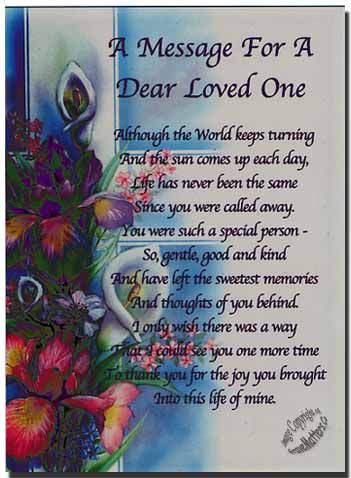 A Message For A
Dear Loved One
Although the World keeps turning
And the sun comes up each day,
Life has never been the same
Since you were called away.
You were such a special person -
So, gentle, good and kind
And have left the sweetest memories
And thoughts of you behind.
I only wish there was a way
That I could see you one more time
To thank you for the joy you brought
Into this life of mine.
image Copyright